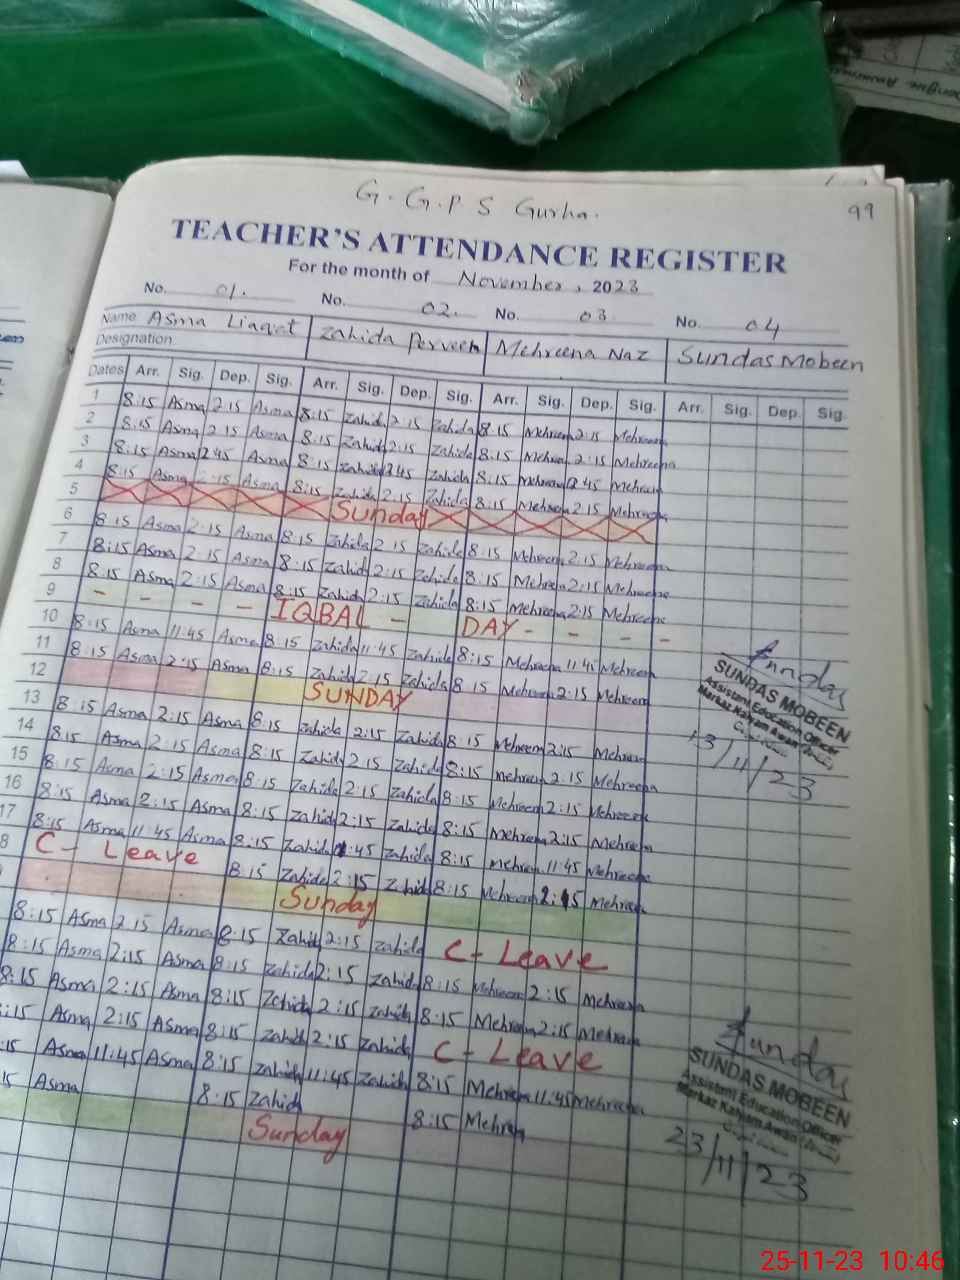 G. G.P S Gurha.
99
TEACHER'S ATTENDANCE REGISTER
For the month of November, 2023
No. 01. No. 02. No. 03 No. 04
Name Asma Liaqat Zahida Perveen Mehreena Naz Sundas Mobeen
Designation
Dates Arr. Sig. Dep. Sig. Arr. Sig. Dep. Sig. Arr. Sig. Dep. Sig. Arr. Sig. Dep. Sig.
1 8:15 Asma 2:15 Asma 8:15 Zahida 2:15 Zahida 8:15 Mehreen 2:15 Mehreena
2 8:15 Asma 2:15 Asma 8:15 Zahida 2:15 Zahida 8:15 Mehreen 2:15 Mehreena
3 8:15 Asma 2:45 Asma 8:15 Zahida 2:45 Zahida 8:15 Mehreen 2:45 Mehreena
4 8:15 Asma 2:15 Asma 8:15 Zahida 2:15 Zahida 8:15 Mehreen 2:15 Mehreena
5 Sunday
6 8:15 Asma 2:15 Asma 8:15 Zahida 2:15 Zahida 8:15 Mehreen 2:15 Mehreena
7 8:15 Asma 2:15 Asma 8:15 Zahida 2:15 Zahida 8:15 Mehreen 2:15 Mehreena
8 8:15 Asma 2:15 Asma 8:15 Zahida 2:15 Zahida 8:15 Mehreen 2:15 Mehreena
9 - - - - IQBAL - DAY - - - -
10 8:15 Asma 11:45 Asma 8:15 Zahida 11:45 Zahida 8:15 Mehreena 11:45 Mehreen
11 8:15 Asma 2:15 Asma 8:15 Zahida 2:15 Zahida 8:15 Mehreen 2:15 Mehreen
12 SUNDAY
13 8:15 Asma 2:15 Asma 8:15 Zahida 2:15 Zahida 8:15 Mehreen 2:15 Mehreen
14 8:15 Asma 2:15 Asma 8:15 Zahida 2:15 Zahida 8:15 Mehreen 2:15 Mehreena
15 8:15 Asma 2:15 Asma 8:15 Zahida 2:15 Zahida 8:15 Mehreen 2:15 Mehreen
16 8:15 Asma 2:15 Asma 8:15 Zahida 2:15 Zahida 8:15 Mehreen 2:15 Mehreen
17 8:15 Asma 11:45 Asma 8:15 Zahida 11:45 Zahida 8:15 Mehreen 11:45 Mehreena
8 C- Leave 8:15 Zahida 2:15 Zahida 8:15 Mehreen 2:15 Mehreen
Sunday
8:15 Asma 2:15 Asma 8:15 Zahida 2:15 Zahida C- Leave
8:15 Asma 2:15 Asma 8:15 Zahida 2:15 Zahida 8:15 Mehreen 2:15 Mehreena
8:15 Asma 2:15 Asma 8:15 Zahida 2:15 Zahida 8:15 Mehreen 2:15 Mehreen
:15 Asma 2:15 Asma 8:15 Zahida 2:15 Zahida C- Leave
:15 Asma 11:45 Asma 8:15 Zahida 11:45 Zahida 8:15 Mehreen 11:45 Mehreena
15 Asma 8:15 Zahida 8:15 Mehreen
Sunday
Sundas
SUNDAS MOBEEN
Assistant Education Officer
13/11/23
Sundas
SUNDAS MOBEEN
Assistant Education Officer
23/11/23
25-11-23 10:46